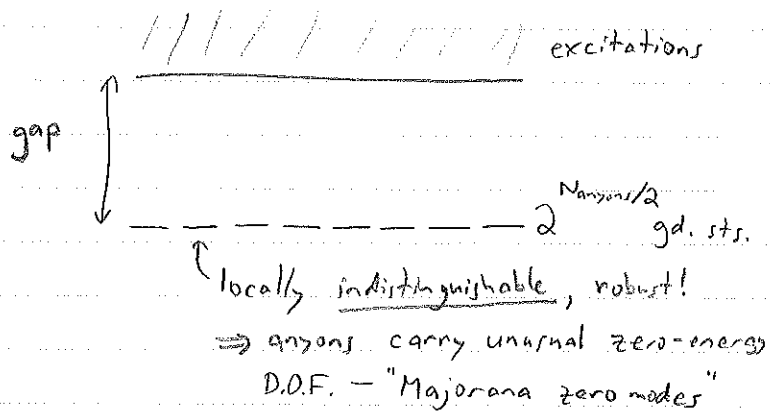 excitations
gap
2^{N_{anyons}/2} gd. sts.
locally indistinguishable, robust!
⇒ anyons carry unusual zero-energy
D.O.F. - "Majorana zero modes"